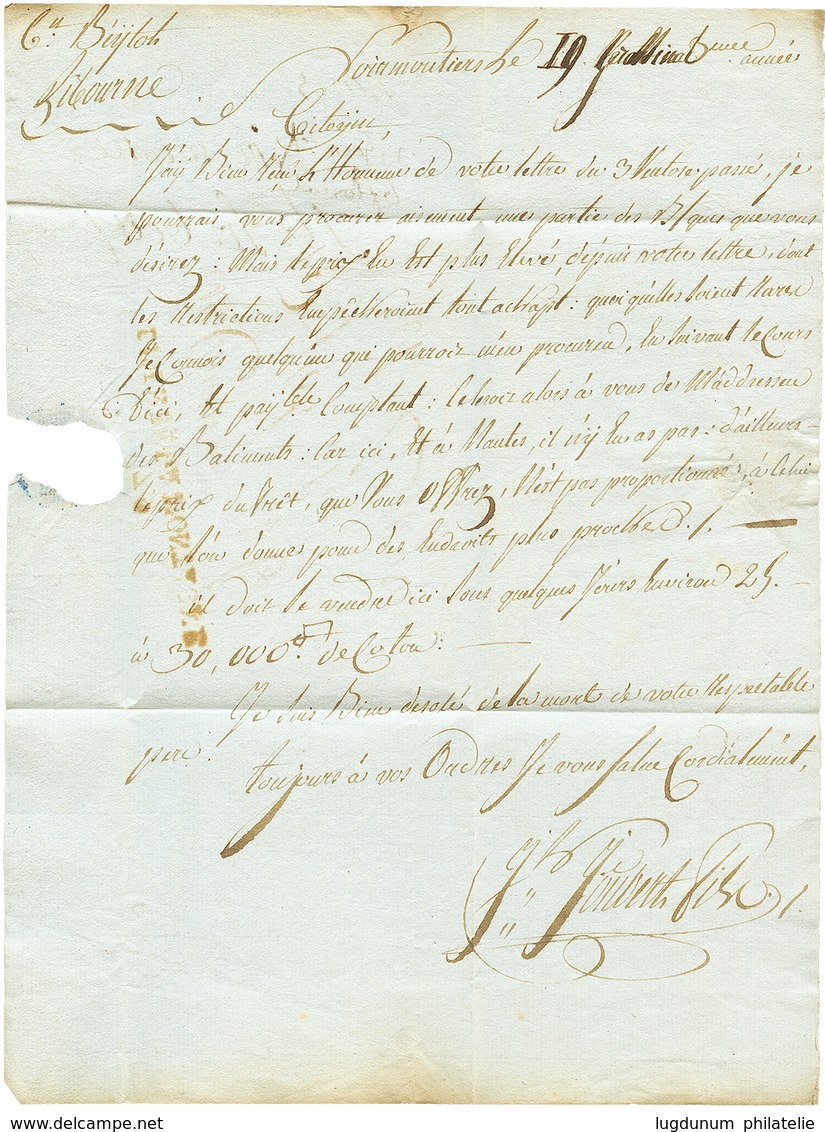 Cn Béylot
Libourne
Noirmoutiers Le 19 Germinal 3eme année
Citoyen,
J'ay Bien Reçu L'Honneur de votre lettre du 3 Ventose passé, je
pourrais vous procurer aisement, une partie des Bques que vous
désirez : Mais le prix En Est plus Elevé, depuis votre lettre, dont
les Restrictions Empêcheroint tout achapt : quoiqu'elles soient Rares
Je Connois quelqu'un qui pourroit m'en procurer, En suivant le Cours
D'ici, Et payble Comptant : Ce seroit alors à vous de M'addresser
des Batiments : Car ici, Et à Nantes, il n'y En as pas : d'ailleurs
le prix du frêt, que Vous Offrez, N'est pas proportionné, à Celui
que l'on donne pour des Endroits plus proches ./.
il doit se vendre ici sous quelques Jours Environ 25.
à 30,000 de Coton.
Je suis Bien desolé de la mort de votre Respectable
pere.
toujours à vos Ordres Je vous salue Cordialement,
Joubert fils
lugdunum philatelie
www.delcampe.net